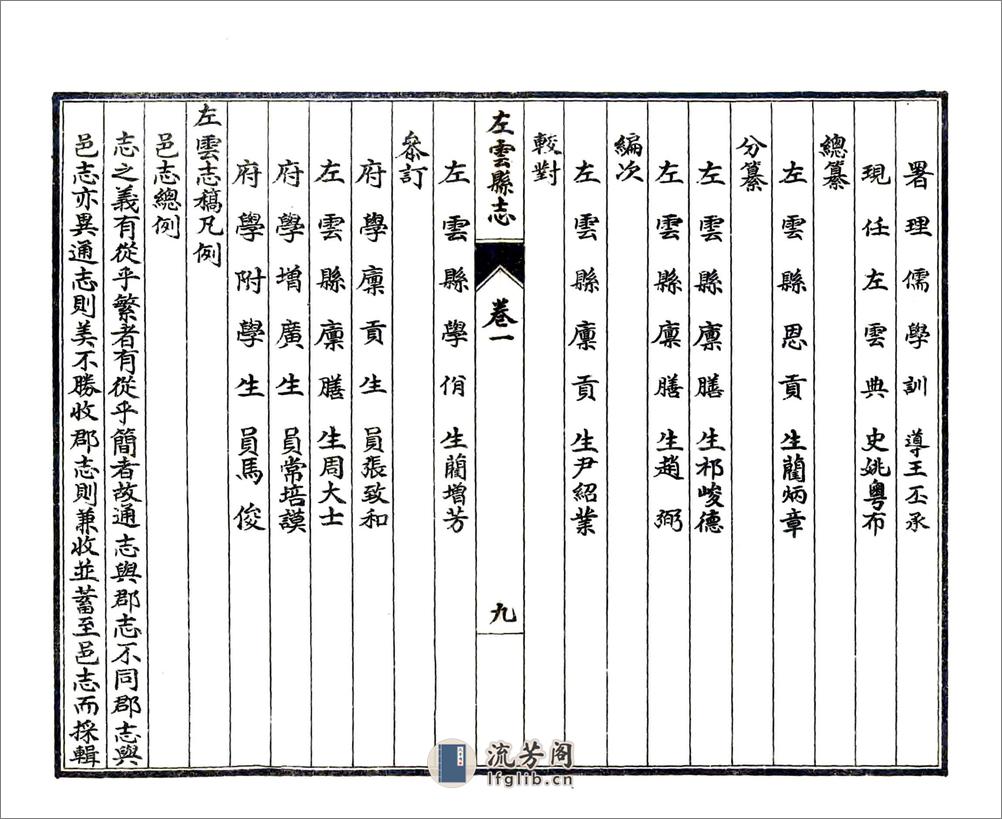 署理儒學訓導王丕承
現任左雲典史姚粵布
總纂
左雲縣恩貢生藺炳章
分纂
左雲縣廩膳生祁峻德
左雲縣廩膳生趙弼
編次
左雲縣廩貢生尹紹業
較對
左雲縣志 卷一 九
左雲縣學佾生藺增芳
叅訂
府學廩貢生員張致和
左雲縣廩膳生周大士
府學增廣生員常培謨
府學附學生員馬俊
左雲志稿凡例
邑志總例
志之義有從乎繁者有從乎簡者故通志與郡志不同郡志與
邑志亦異通志則美不勝收郡志則兼收並蓄至邑志而採輯
流芳阁
lfglib.cn